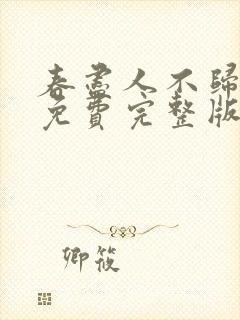 春盡人不歸
免費完整版
卿筱